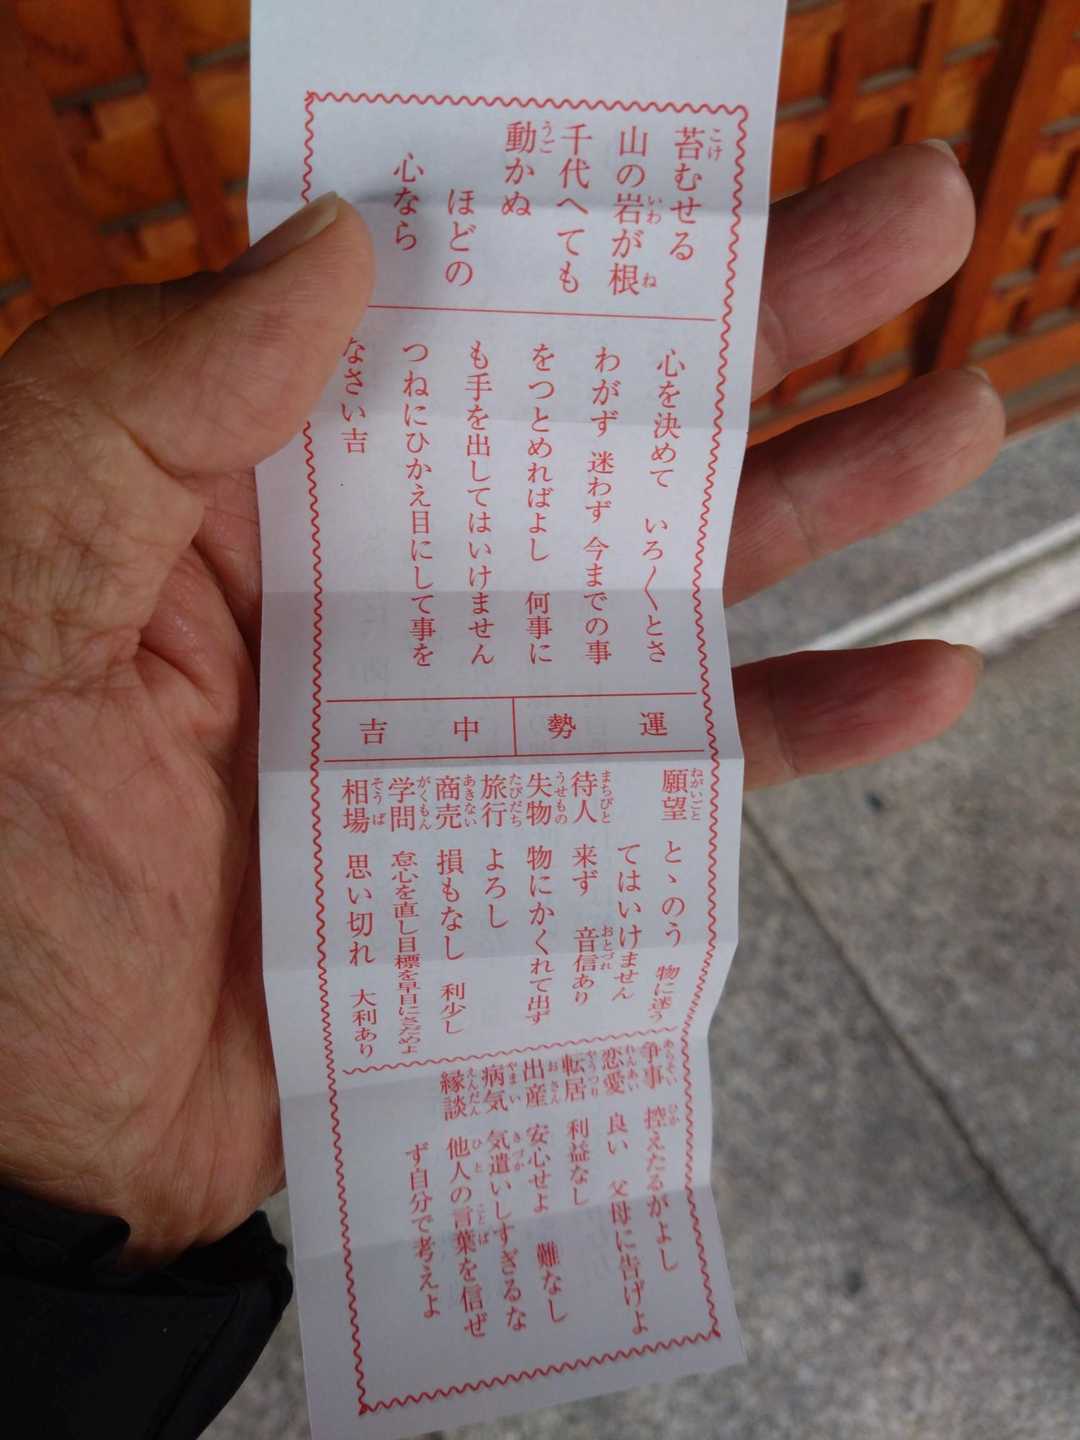 苔むせる
山の岩が根
千代へても
動かぬ
ほどの
心なら
心を決めて いろ〳〵とさ
わがず 迷わず 今までの事
をつとめればよし 何事に
も手を出してはいけません
つねにひかえ目にして事を
なさい吉
運勢 中吉
願望 とゝのう 物に迷う
てはいけません
待人 来ず 音信あり
失物 物にかくれて出ず
旅行 よろし
商売 損もなし 利少し
学問 怠心を直し目標を早目にさだめよ
相場 思い切れ 大利あり
争事 控えたるがよし
恋愛 良い 父母に告げよ
転居 利益なし
出産 安心せよ 難なし
病気 気遣いしすぎるな
縁談 他人の言葉を信ぜ
ず自分で考えよ